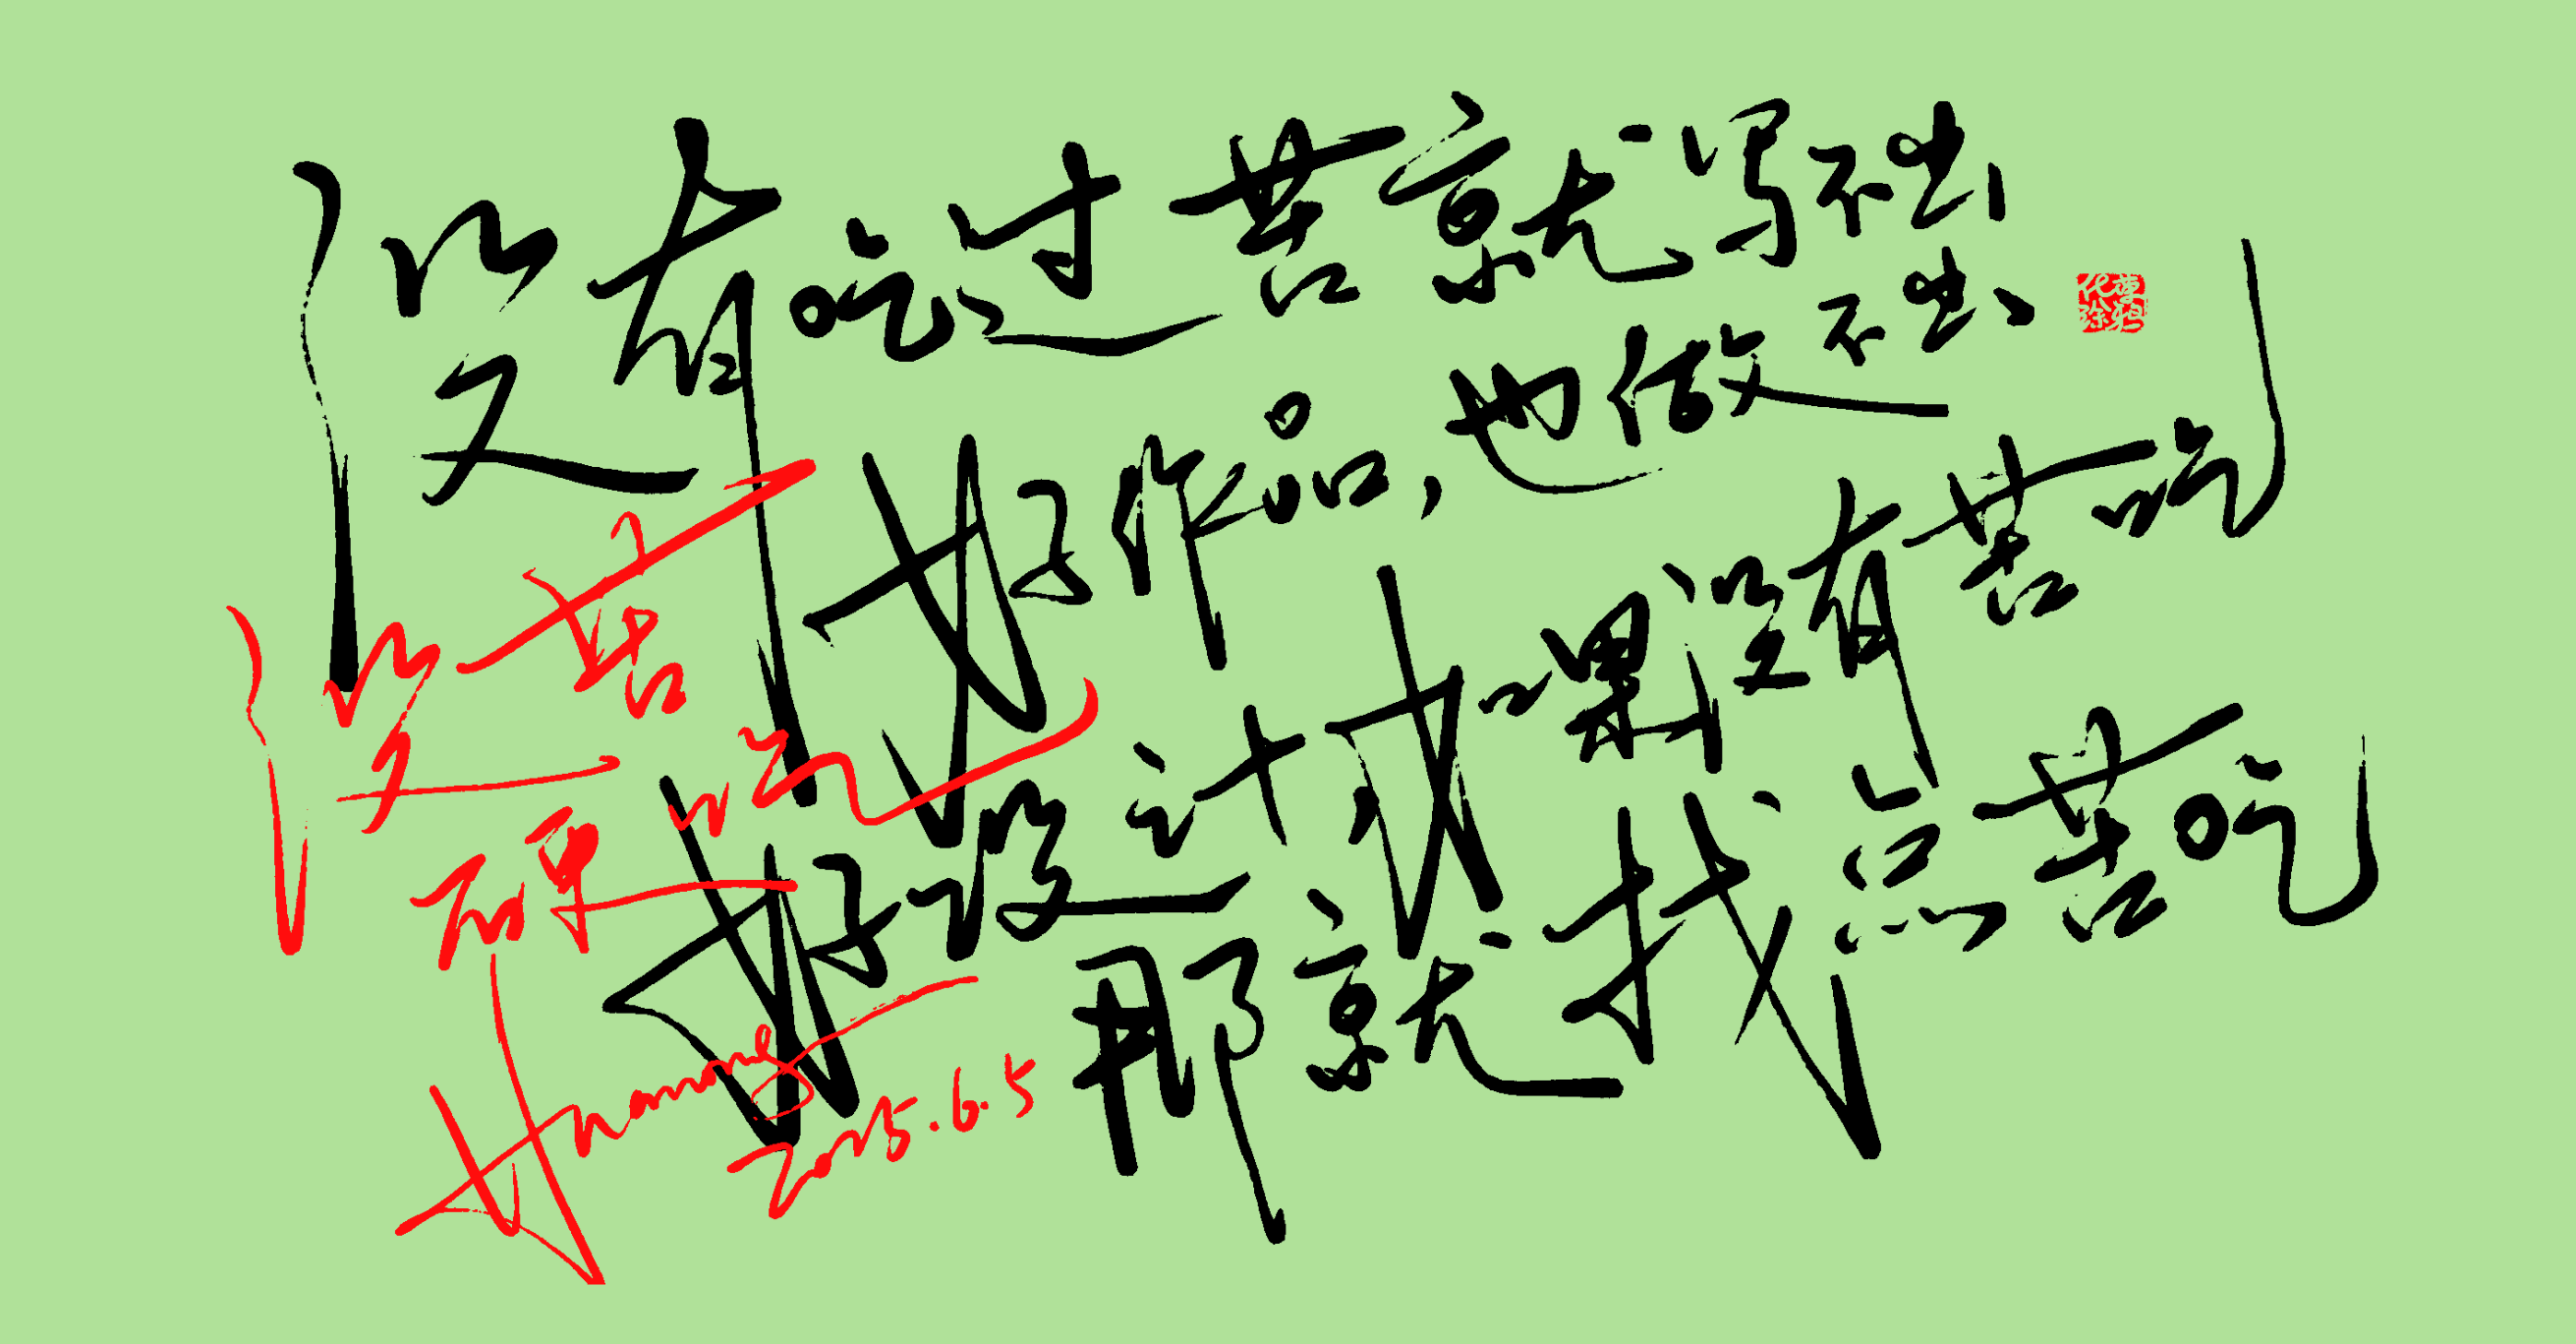 没有吃过苦就写不出
好作品,也做不出
好设计,如果没有苦吃
那就找点苦吃
没苦
硬吃
Huamang
2025.6.5